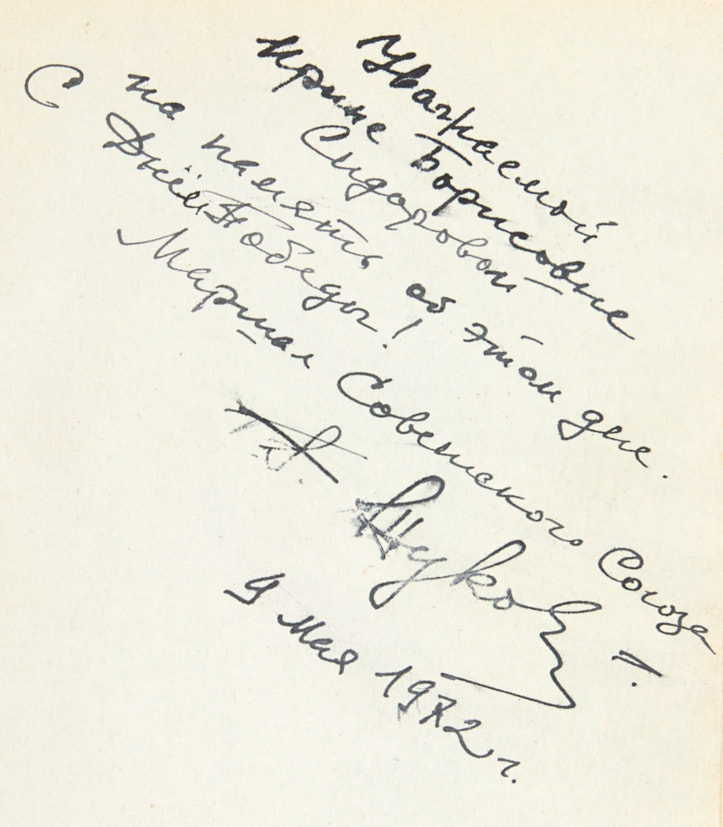 Уважаемой
Ирине Борисовне
Сидоровой
на память об этом дне.
С Днём Победы!
Маршал Советского Союза
Г. Жуков
9 Мая 1972 г.